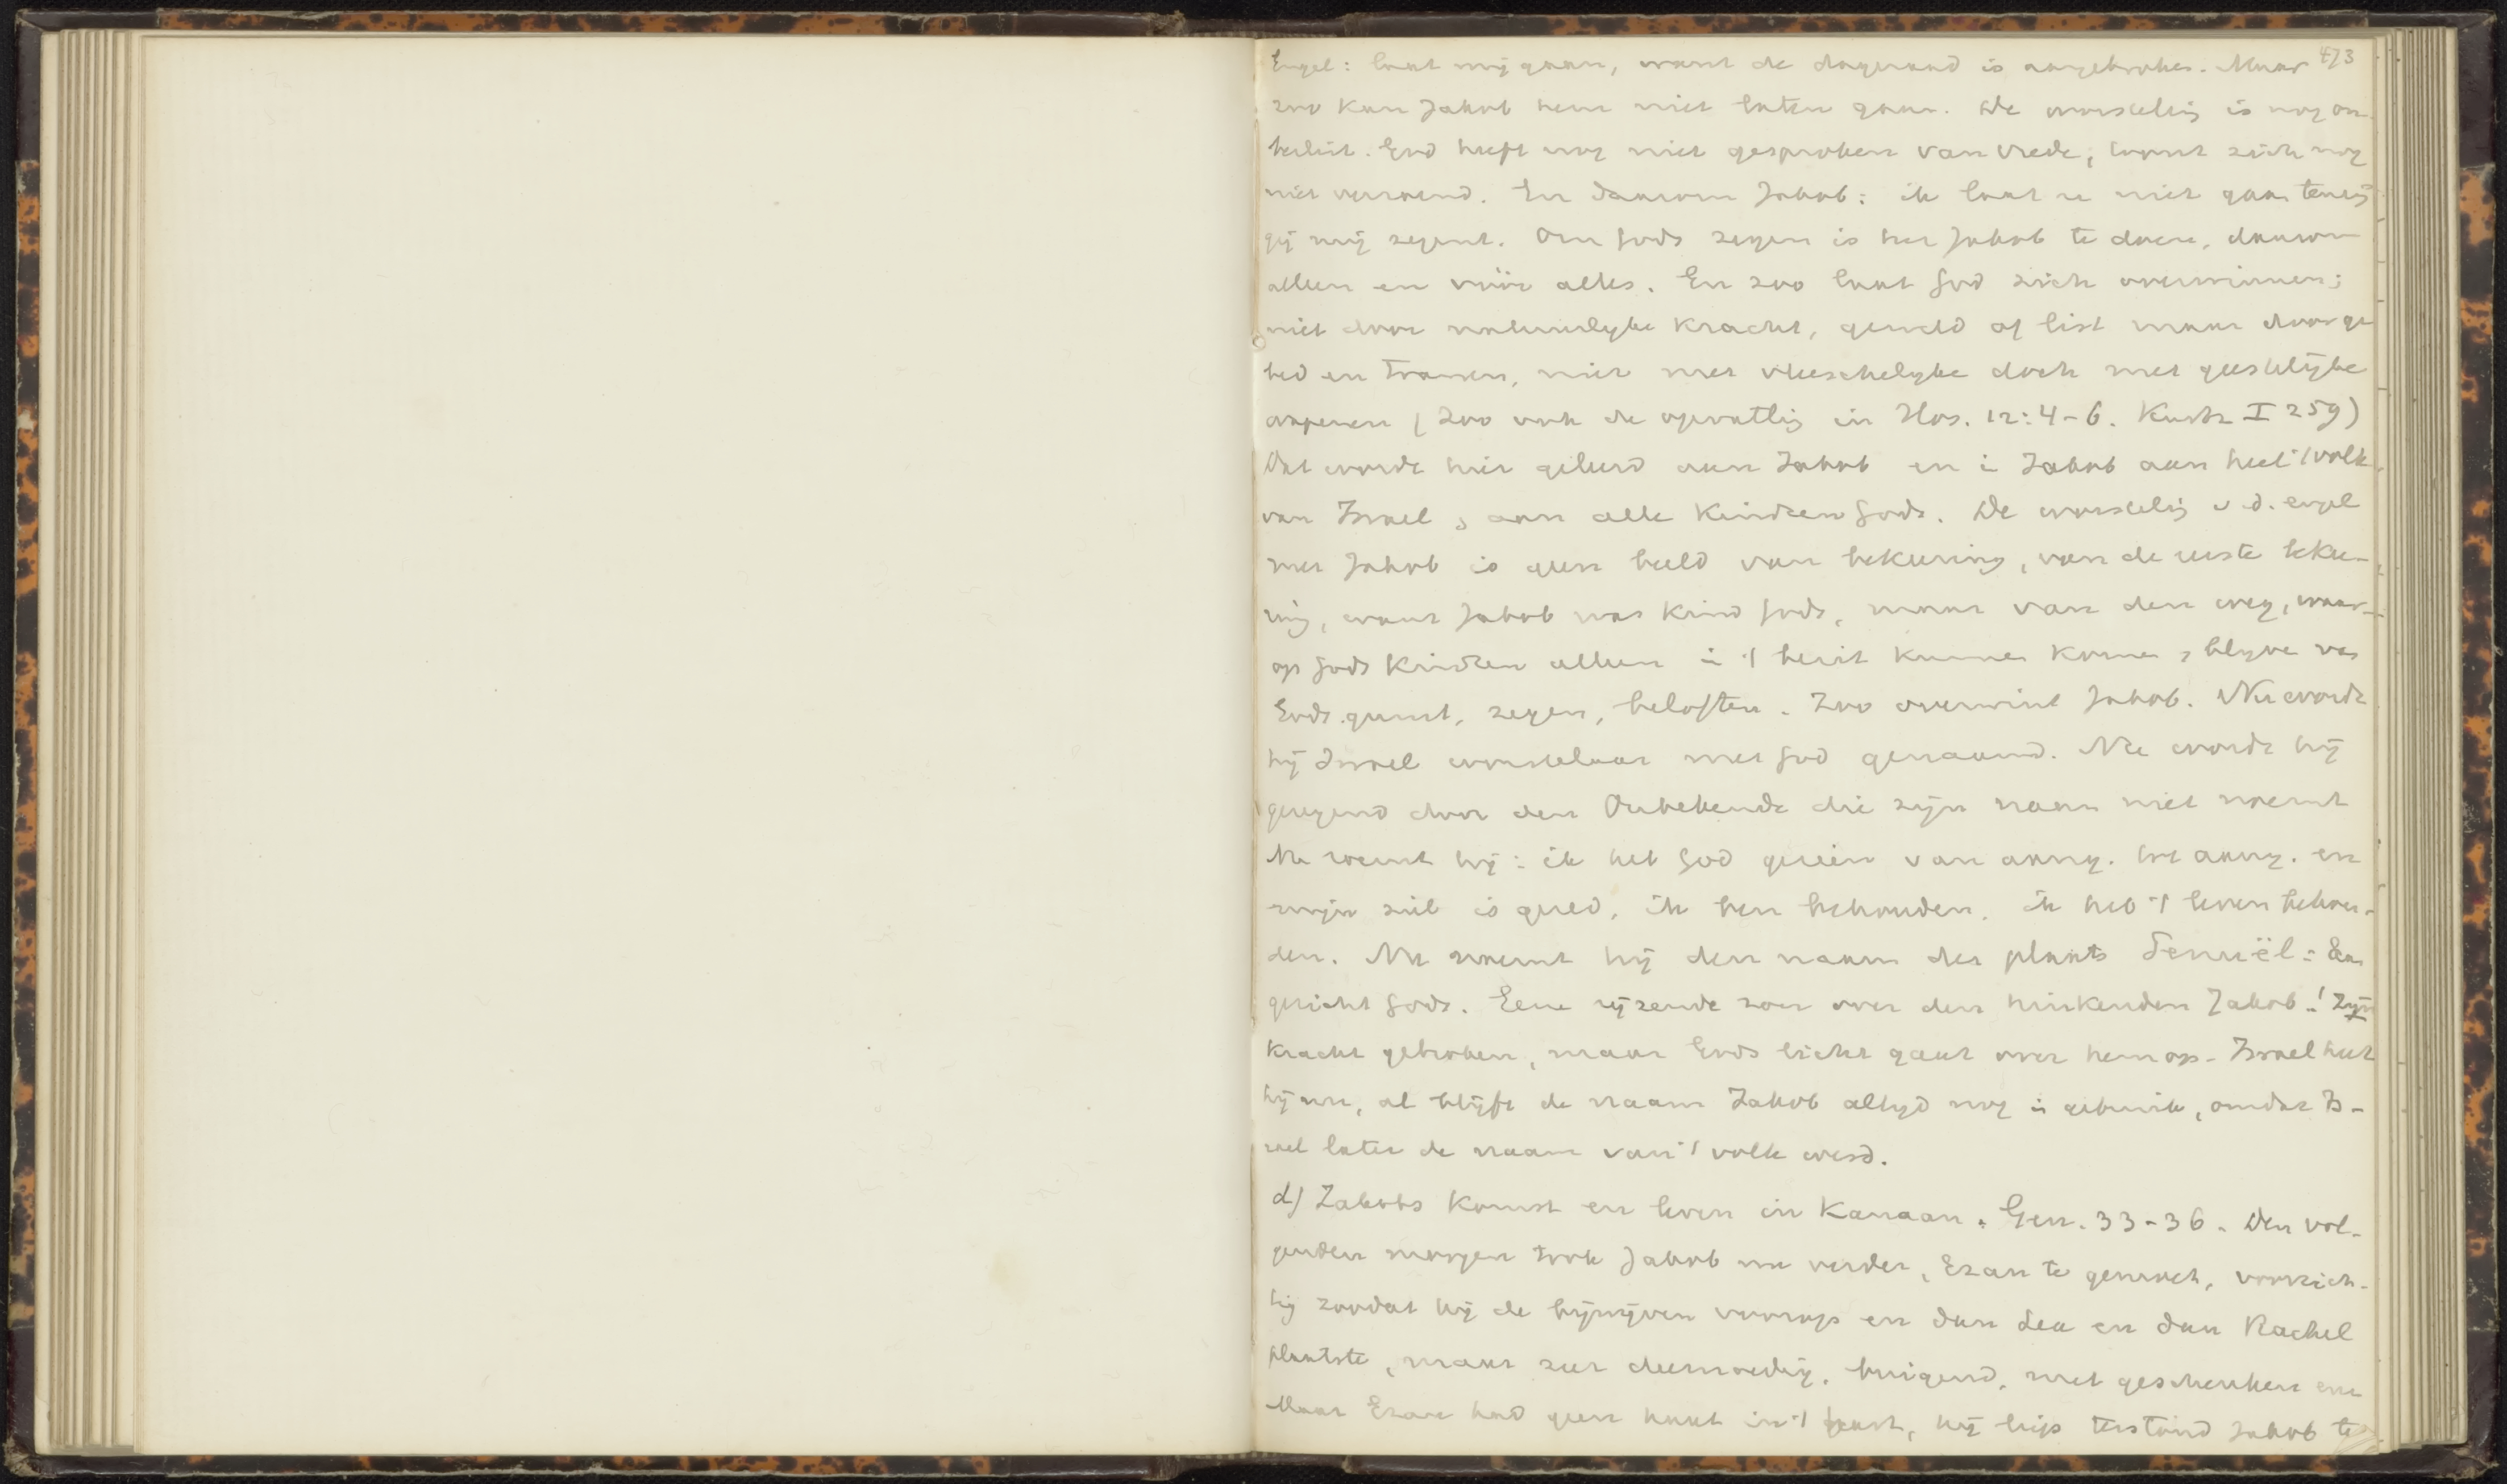 473
Engel: laat mij gaan, want de dageraad is aangebroken. Maar
zoo kan Jakob hem niet laten gaan. De worsteling is nog on-
beslist. God heeft nog niet gesproken van vrede, toont zich nog
niet verzoend. En daarom Jakob: ik laat u niet gaan tenzij
gij mij zegent. Om Gods zegen is het Jakob te doen, daarom
alleen en vóór alles. En zoo laat God zich overwinnen;
niet door natuurlijke kracht, geweld of list maar door ge
bed en tranen, niet met vleeschelijke doch met geestelijke
wapenen (zoo ook de opvatting in Hos. 12:4-6. Kurtz I 259)
Dat wordt hier geleerd aan Jakob en in Jakob aan heel 't volk
van Israel, aan alle kinderen Gods. De worsteling v. d. engel
met Jakob is geen beeld van bekeering, van de eerste bekee-
ring, want Jakob was kind Gods, maar van den weg, waar-
op Gods kinderen alleen in 't bezit kunnen komen & blijve van
Gods gunst, zegen, beloften. Zoo overwint Jakob. Nu wordt
hij Israel worstelaar met God genaamd. Nu wordt hij
gezegend door den Onbekende die zijn naam niet noemt
Nu roemt hij: ik heb God gezien van aang. tot aang. en
mijn ziel is gered, ik ben behouden, ik heb 't leven behou-
den. Nu noemt hij den naam der plaats Penuël: Aan
gezicht Gods. Eene rijzende zon over den hinkenden Jakob! Zijn
kracht gebroken, maar Gods licht gaat over hem op. Israel heet
hij nu, al blijft de naam Jakob altijd nog in gebruik, omdat Is-
rael later de naam van 't volk werd.
d) Jakobs komst en leven in Kanaan. Gen. 33-36. Den vol-
genden morgen trok Jakob nu verder, Ezau te gemoet, voorzich-
tig zoodat hij de bijwijven voorop en dan Lea en dan Rachel
plaatste, maar zeer deemoedig, buigend, met geschenken enz
Maar Ezau had geen haat in 't hart, hij liep terstond Jakob te